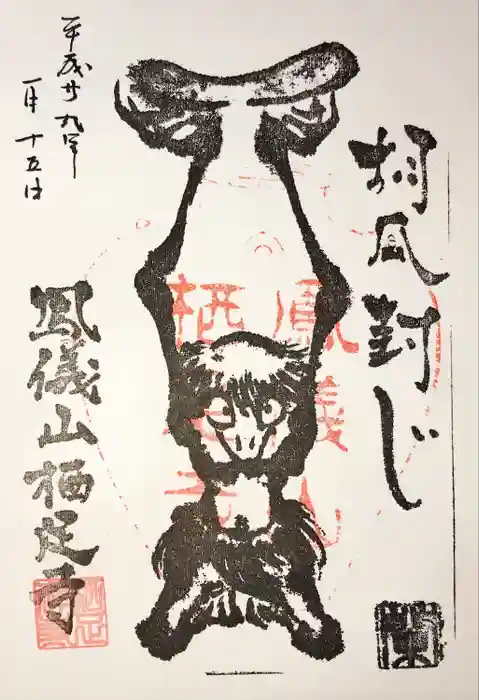 胡瓜封じ
鳳儀山
栖足寺
平成廿九年
一月十五日
鳳儀山栖足寺